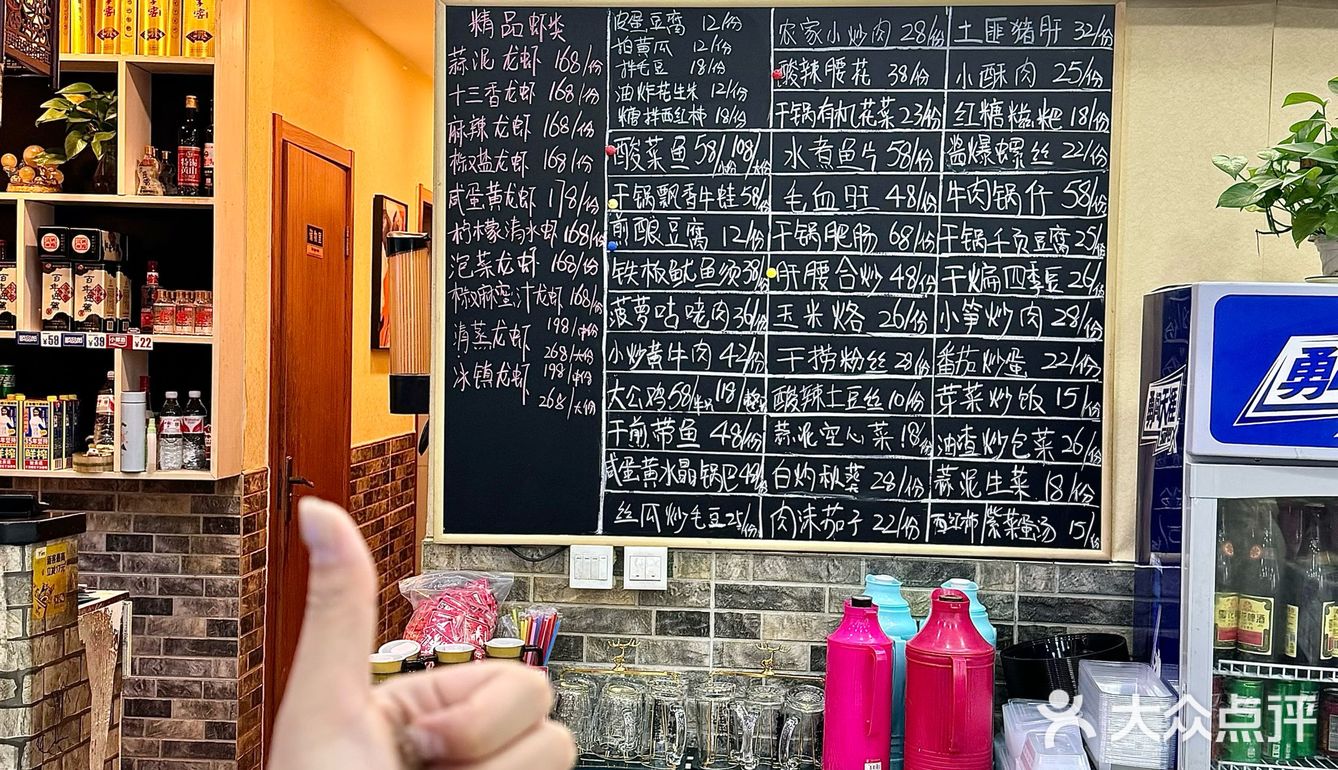 精品虾类
蒜泥龙虾 168/份
十三香龙虾 168/份
麻辣龙虾 168/份
椒盐龙虾 168/份
咸蛋黄龙虾 178/份
柠檬清水虾 168/份
泡菜龙虾 168/份
椒麻蛋汁龙虾 168/份
清蒸龙虾 198/中份
268/大份
冰镇龙虾 198/中份
268/大份
皮蛋豆腐 12/份
拍黄瓜 12/份
拌毛豆 18/份
油炸花生米 12/份
糖拌西红柿 18/份
酸菜鱼 58/小份 108/大份
干锅飘香牛蛙 58/份
煎酿豆腐 12/份
铁板鱿鱼须 38/份
菠萝咕咾肉 36/份
小炒黄牛肉 42/份
大公鸡 58/半只 118/整只
干煎带鱼 48/份
咸蛋黄水晶锅巴 48/份
丝瓜炒毛豆 25/份
农家小炒肉 28/份
酸辣腰花 38/份
干锅有机花菜 23/份
水煮鱼片 58/份
毛血旺 48/份
干锅肥肠 68/份
肝腰合炒 48/份
玉米烙 26/份
干捞粉丝 28/份
酸辣土豆丝 10/份
蒜泥空心菜 18/份
白灼秋葵 28/份
肉沫茄子 22/份
土匪猪肝 32/份
小酥肉 25/份
红糖糍粑 18/份
酱爆螺丝 22/份
牛肉锅仔 58/份
干锅千页豆腐 25/份
干煸四季豆 26/份
小笋炒肉 28/份
番茄炒蛋 22/份
芽菜炒饭 15/份
油渣炒包菜 26/份
蒜泥生菜 18/份
西红柿紫菜蛋汤 15/份
¥59
¥39
¥22
勇
大众点评